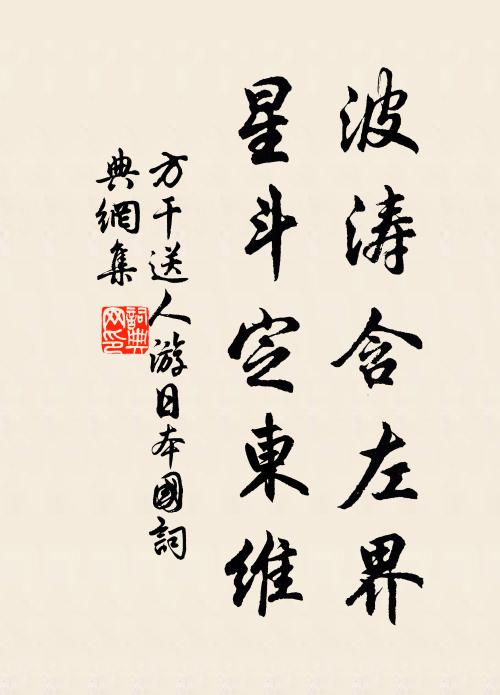 波涛含左界
星斗定東維
方干送人游日本國詞
典網集
詞典网印